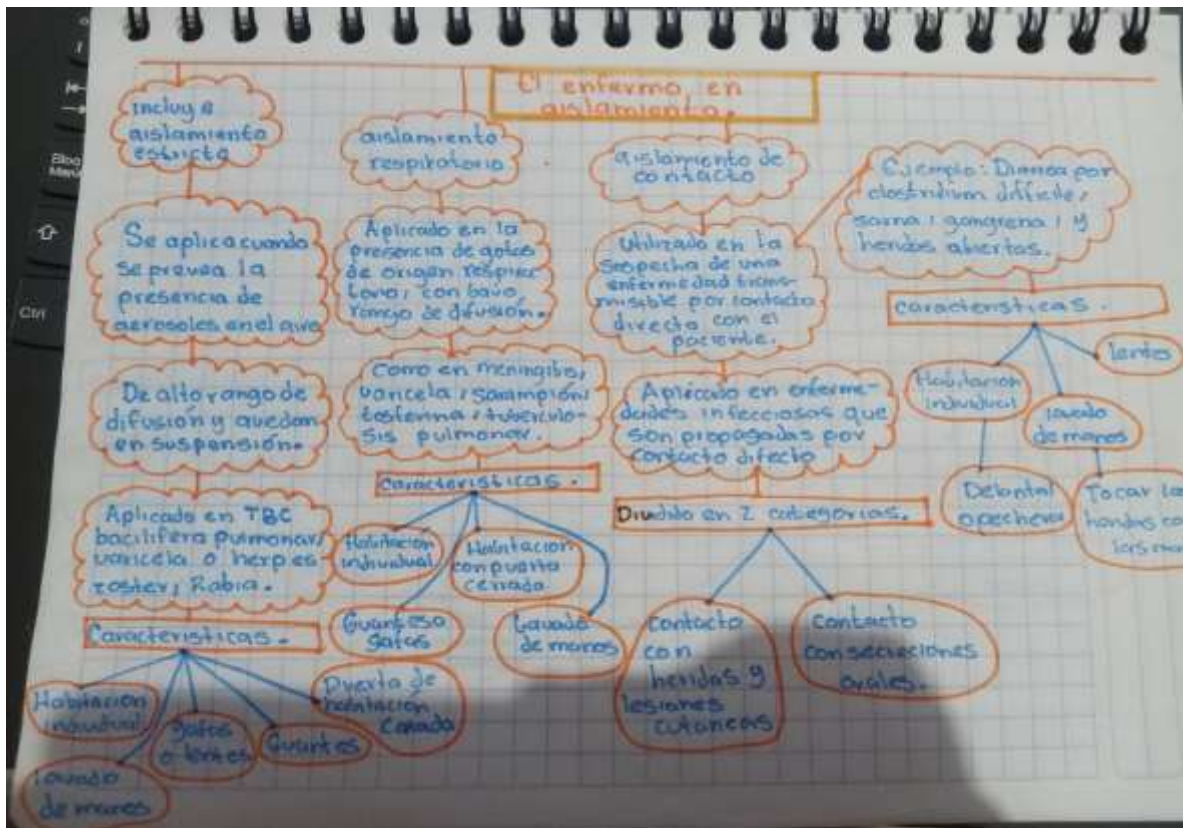 El enfermo, en
aislamiento.
incluye
aislamiento
estricto
Se aplica cuando
se prevea la
presencia de
aerosoles en el aire
De alto rango de
difusión y quedan
en suspensión.
Aplicado en TBC
bacilifera pulmonar,
varicela o herpes
zoster, Rabia.
Caracteristicas.
Habitacion
individual
lavado
de manos
gafas
o lentes
Guantes
Puerta de
habitación
Cerrada
aislamiento
respiratorio
Aplicado en la
presencia de gotas
de origen respira
toria, con bajo
rango de difusión.
como en meningitis,
varicela, sarampión,
tosferina, tuberculo-
sis pulmonar.
Caracteristicas.
Habitacion
individual
Guantes o
gafas
Habitacion
con puerta
cerrada
Lavado
de manos
aislamiento de
contacto
Utilizado en la
sospecha de una
enfermedad trans-
misible por contacto
directo con el
paciente.
Aplicado en enferme-
dades infecciosas que
son propagadas por
contacto directo
Dividido en 2 categorias.
contacto
con
heridas y
lesiones
cutaneas
Contacto
con secreciones
orales.
Ejemplo: Diarrea por
clostridium difficile,
sarna, gangrena, y
heridas abiertas.
caracteristicas.
Habitacion
individual
Delantal
o pechera
lavado
de manos
Tocar la
heridas co
las
lentes
Bloq
Mayú
Ctrl